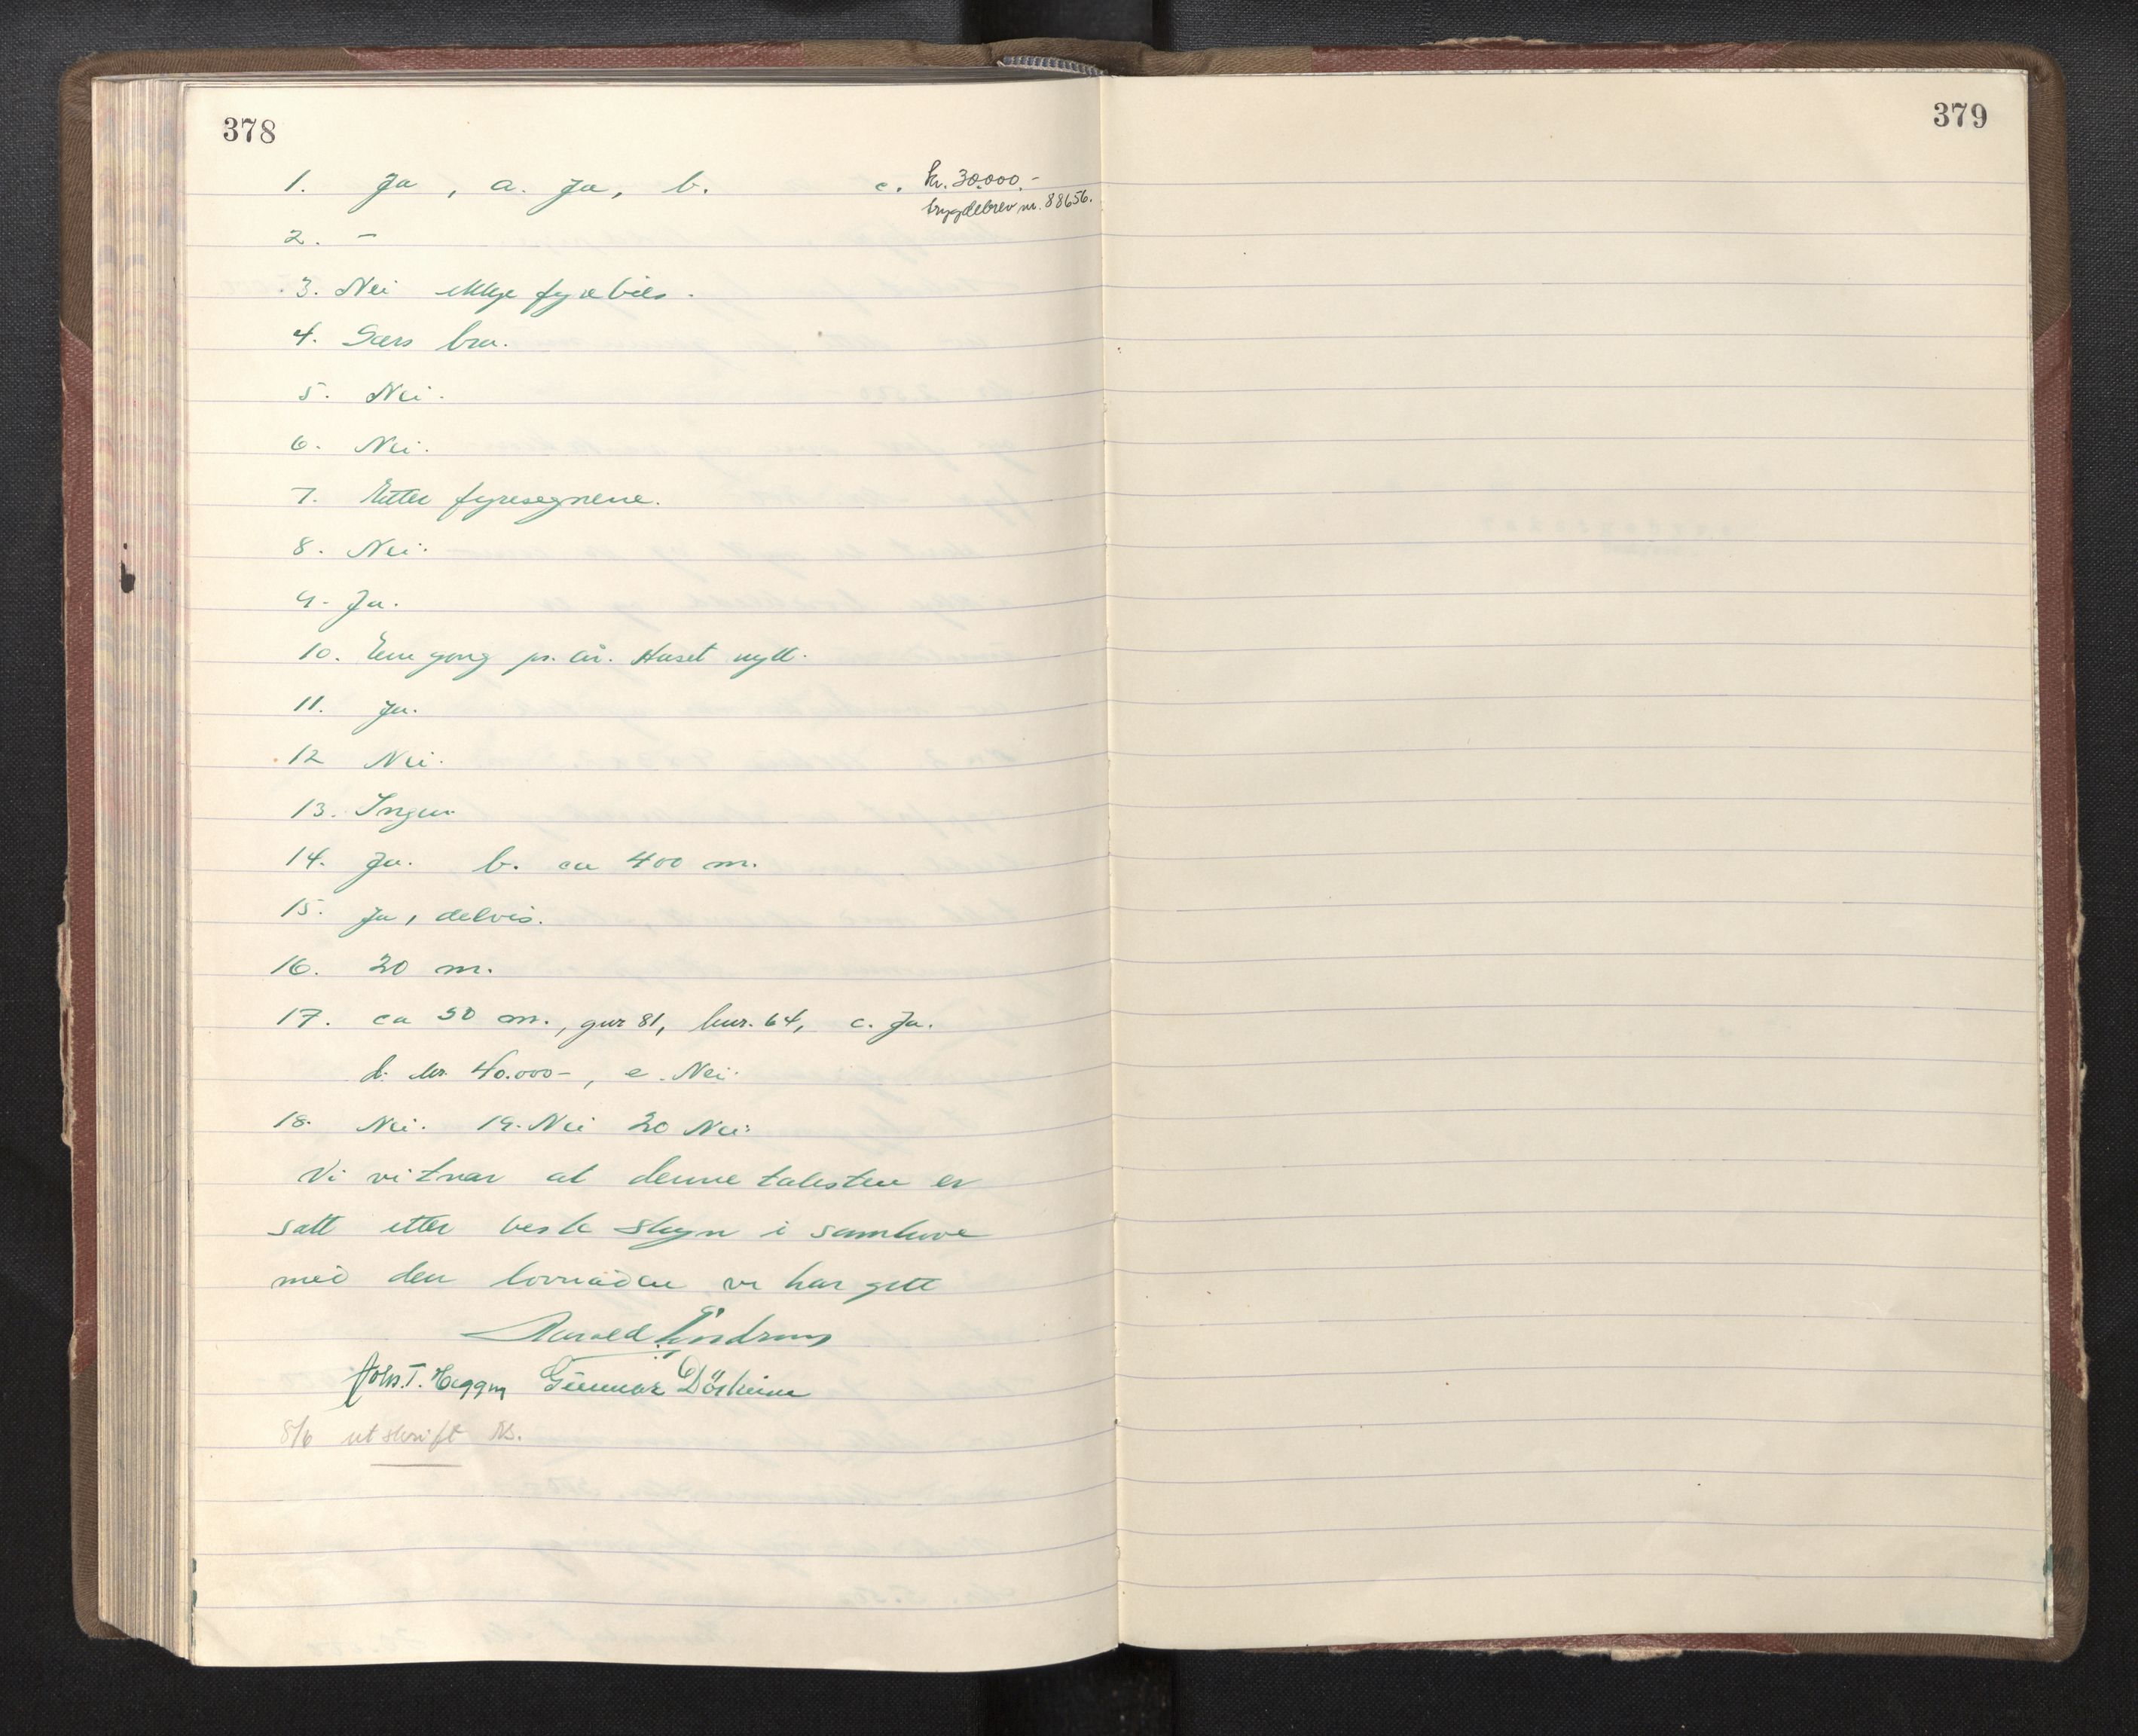 378
1. Ja, a. Ja, b. c. kr. 30.000.-
trygdebrev nr. 88656.
2. -
3. Nei ikkje fyrebils.
4. Særs bra.
5. Nei.
6. Nei.
7. Etter fyresegnene.
8. Nei.
9. Ja.
10. Ein gong pr. år. Huset nytt.
11. Ja.
12 Nei.
13. Ingen
14. Ja. b. ca 400 m.
15. Ja, delvis.
16. 20 m.
17. ca 50 m., gnr 81, bnr. 64, c. Ja.
d. kr. 40.000-, e. Nei.
18. Nei. 19. Nei 20 Nei.
Vi vitnar at denne taksten er
satt etter beste skyn i samhøve
med den lovnaden vi har gett
Harald
Johs. T. Gunnar
8/6 utskrift
379